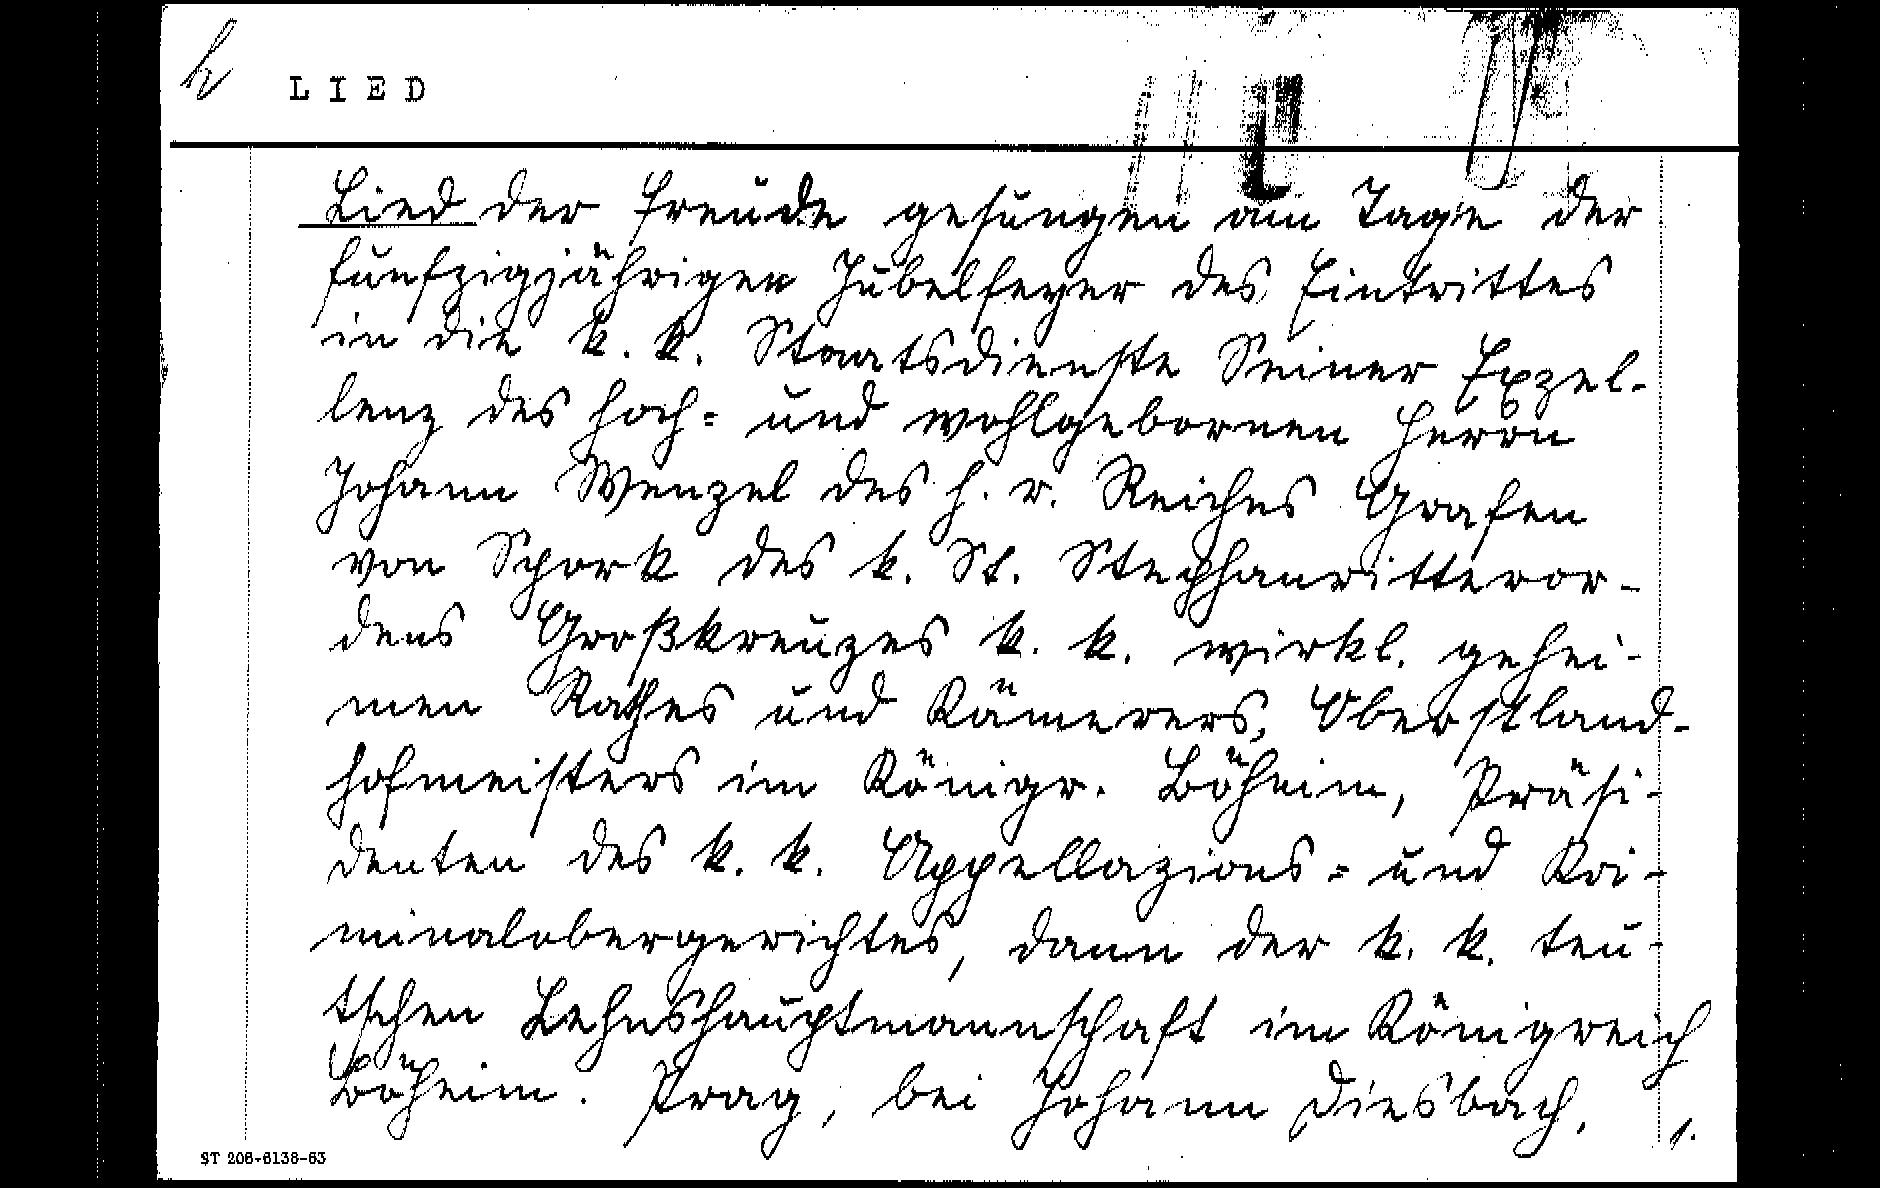 h
LIED
Lied der Freude gesungen am Tage der
funfzigjährigen Jubelfeyer des Eintrittes
in die k. k. Staatsdienste Seiner Exzel-
lenz des hoch= und wohlgebornen Herrn
Johann Wenzel des h. r. Reiches Grafen
von Spork des k. St. Stephanritteror-
dens Großkreuzes k. k. wirkl. gehei-
men Rathes und Kämerers, Oberstland-
hofmeisters im Königr. Böheim, Präsi-
denten des k. k. Appellazions= und Kri-
minalobergerichtes, dann der k. k. teu-
tschen Lehnshauptmannschaft im Königreich
Böheim. Prag, bei Johann Diesbach.
1.
ST 206-6138-63